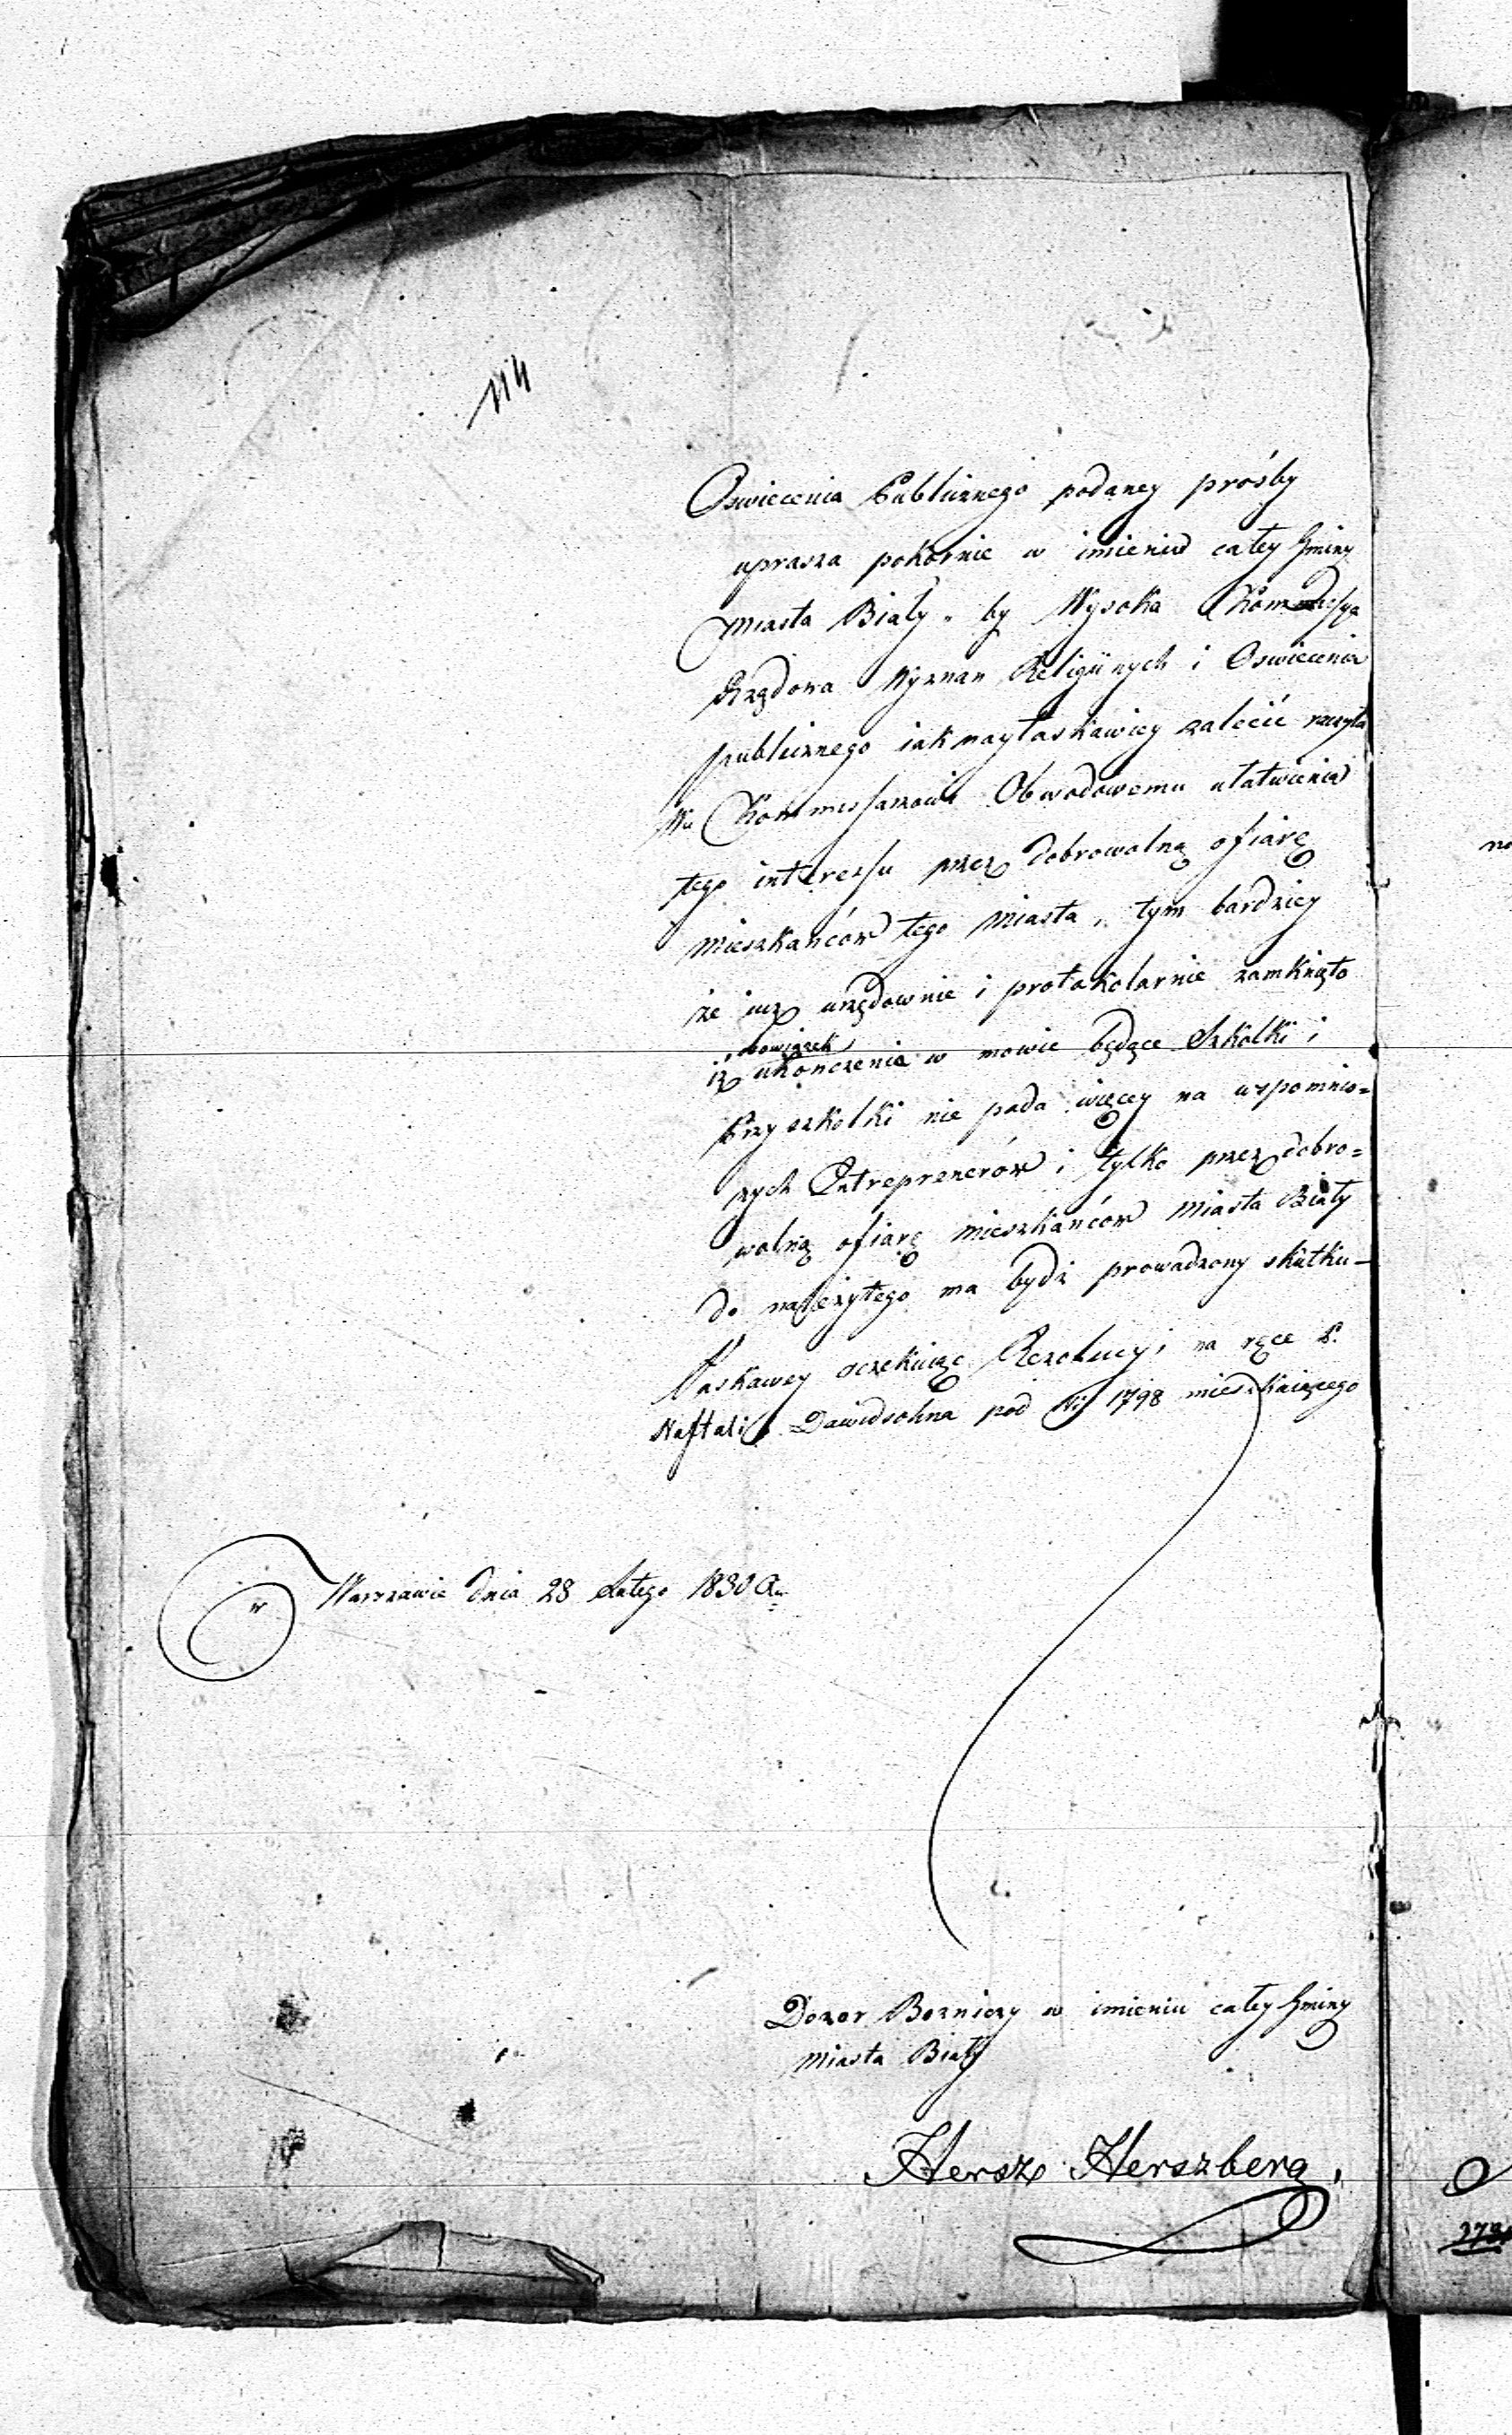 114
Oswiecenia Publicznego podaney prośby
uprasza pokornie w imieniu całey Gminy
Miasta Biały. by Wysoka Kommissya
Rządowa Wyznan Religiinych i Oswiecenia
publicznego iaknayłaskawiey zalecić raczyła
Wu Kommissarzowi Obwodowemu ułatwienia
tego interessu przez dobrowolną ofiarę
Mieszkańców tego Miasta, tym bardziey
że iuż urzędownie i protokolarnie zamknięto
obowiązek
iż ukonczenie w mowie będące Szkolki i
Przyszkolki nie pada więcey na wspomnio=
nych Entreprenerów i tylko przez dobro=
wolną ofiarę Mieszkańców Miasta Biały
do należytego ma bydź prowadzony skutku—
Łaskawey oczekuiąc Rezolucyi na ręce P.
Naftali Dawidsohna pod Nr 1798 mieszkaiącego
w Warszawie dnia 28 Lutego 1830 R.
Dozor Bozniczy w imieniu całey Gminy
Miasta Biały
Hersz Herszberg.